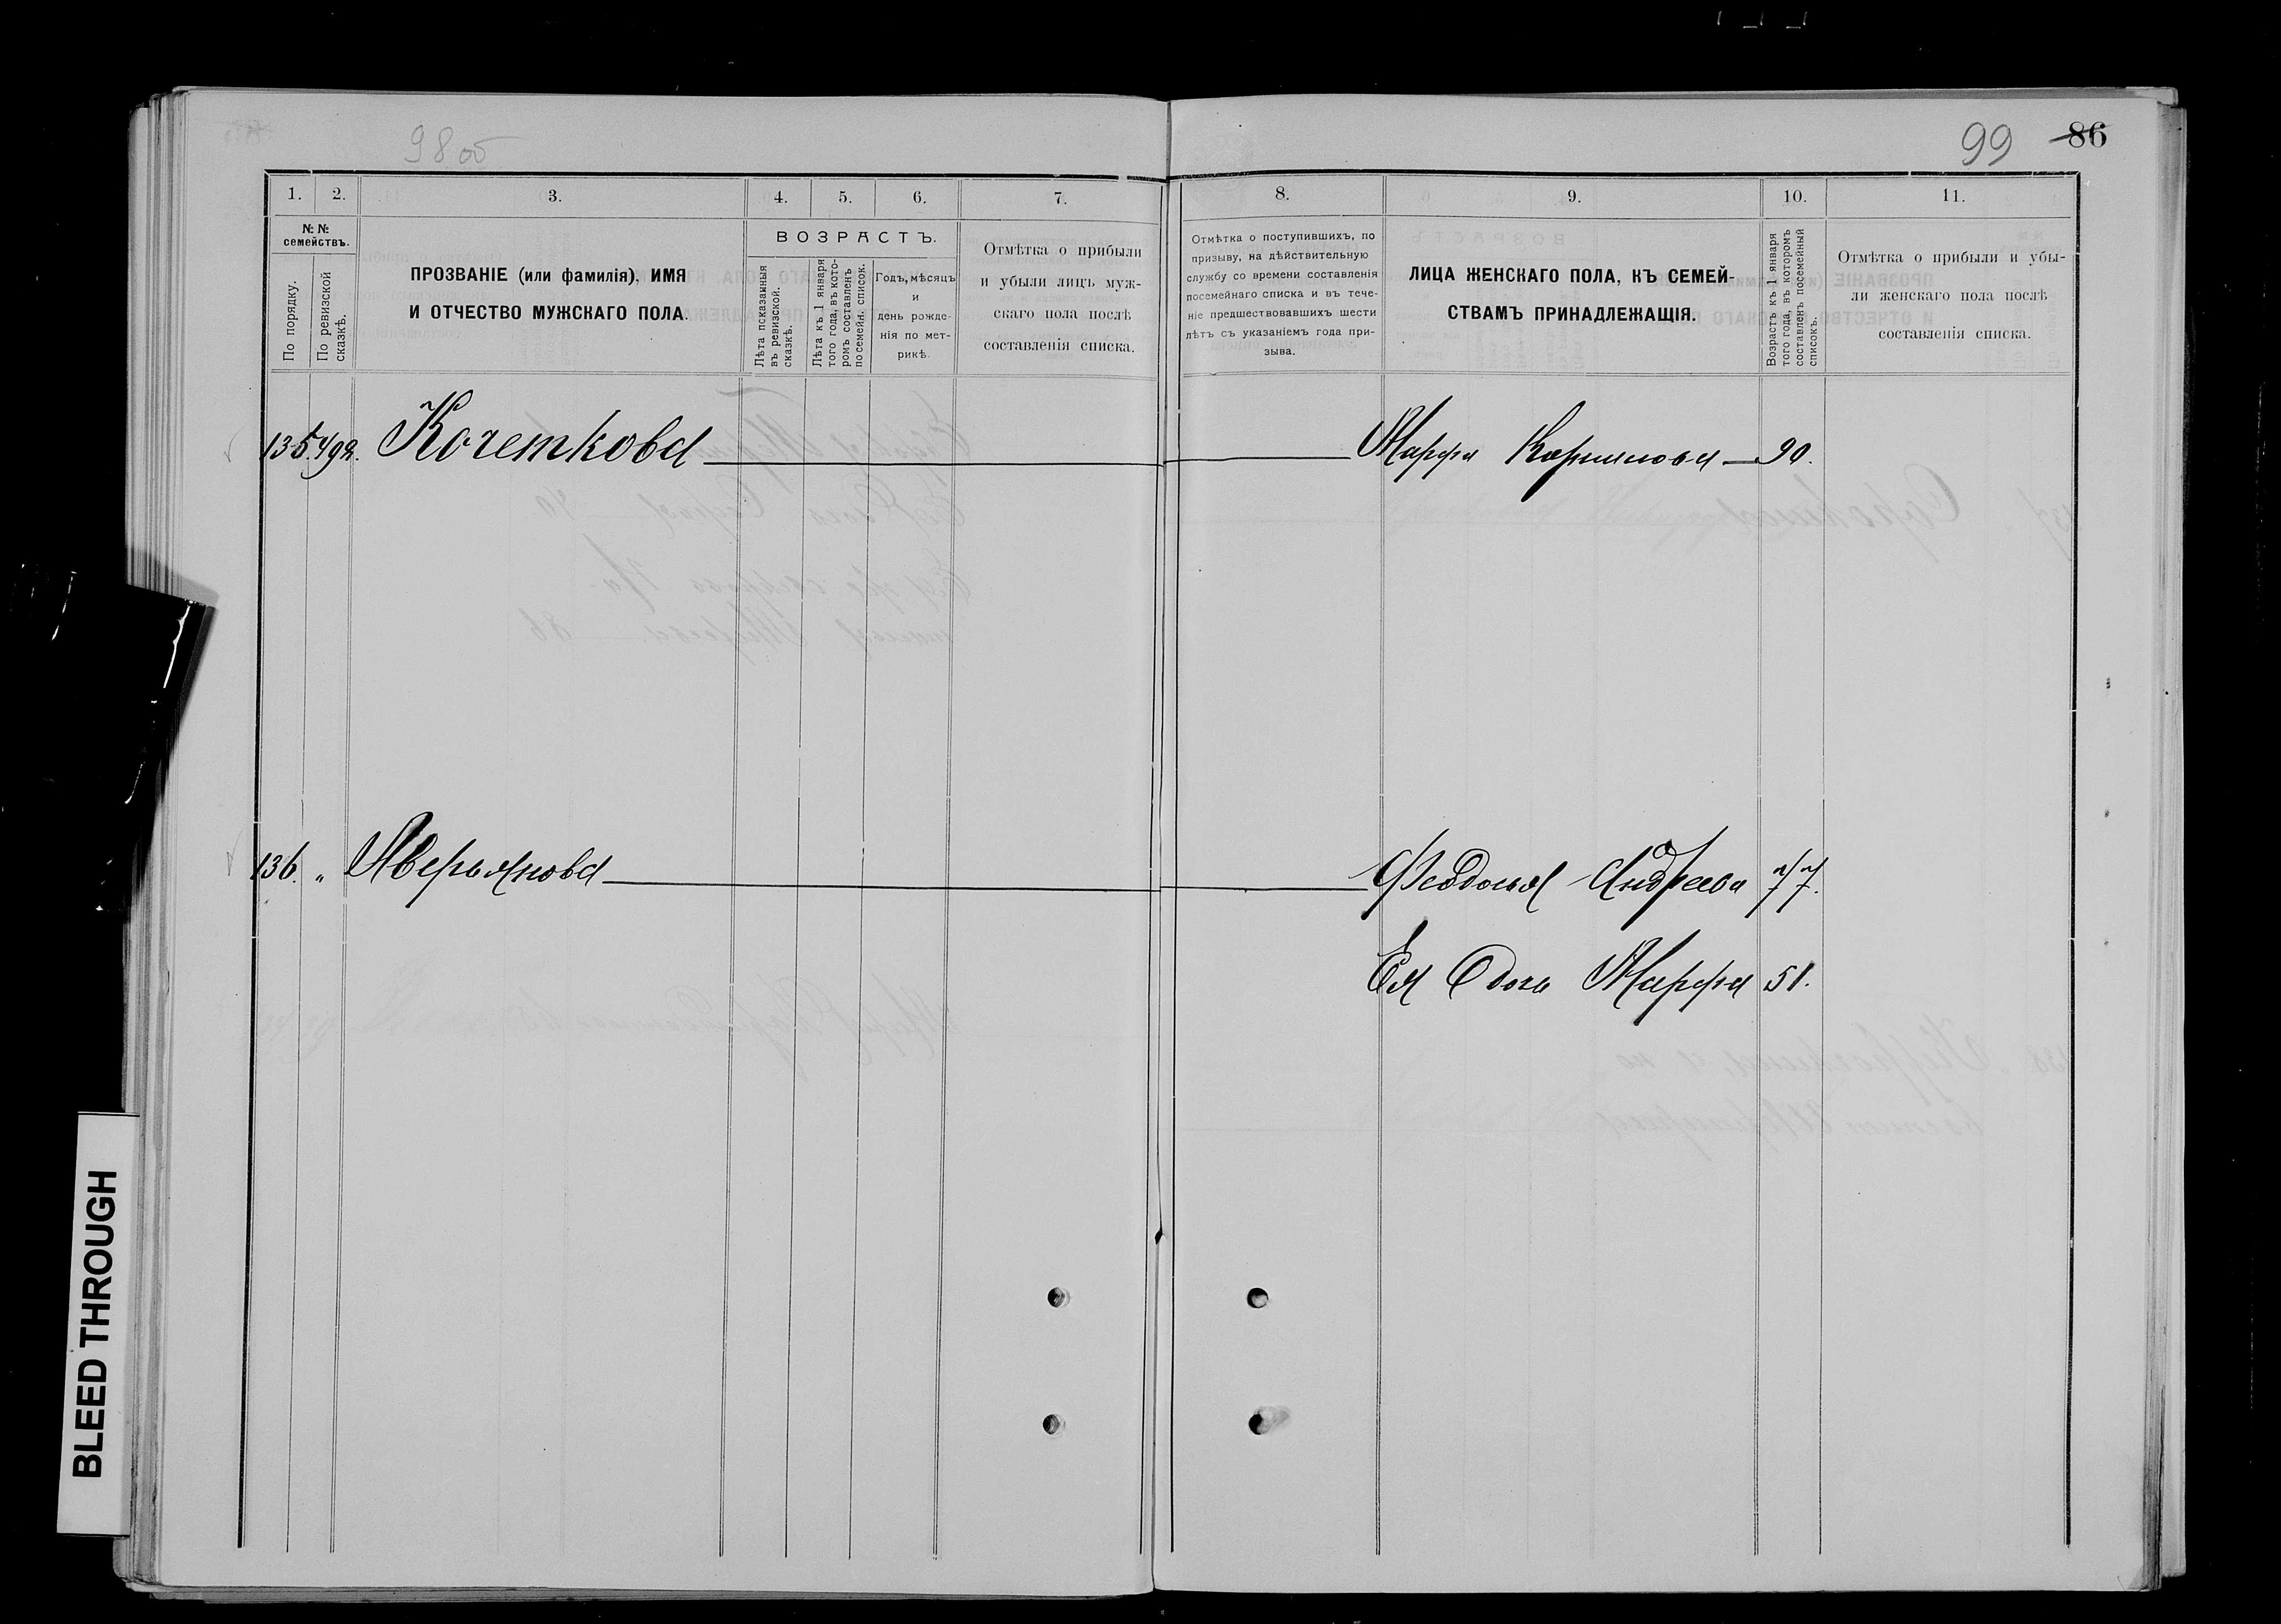 98 об
99 86
1. 2. 3. 4. 5. 6. 7. 8. 9. 10. 11.
№№ семействъ.
По порядку.
По ревизской сказкѣ.
ПРОЗВАНІЕ (или фамилія), ИМЯ
И ОТЧЕСТВО МУЖСКАГО ПОЛА.
ВОЗРАСТЪ.
Лѣта показанныя
въ ревизской.
сказкѣ.
Лѣта къ 1 января
того года, въ кото-
ромъ составленъ
посемейн. список.
Годъ, мѣсяцъ
и
день рожде-
нія по мет-
рикѣ.
Отмѣтка о прибыли
и убыли лицъ муж-
скаго пола послѣ
составленія списка.
Отмѣтка о поступившихъ, по
призыву, на дѣйствительную
службу со времени составленія
посемейнаго списка и въ тече-
ніе предшествовавшихъ шести
лѣтъ съ указаніемъ года при-
зыва.
ЛИЦА ЖЕНСКАГО ПОЛА, КЪ СЕМЕЙ-
СТВАМЪ ПРИНАДЛЕЖАЩІЯ.
Возрастъ къ 1 января
того года, въ которомъ
составленъ посемейный
списокъ.
Отмѣтка о прибыли и убы-
ли женскаго пола послѣ
составленія списка.
135. 492. Кочеткова Марфа Корнилова 90.
136. " Аверьянова Федосья Андреева 77.
Ея дочь Марфа 51.
BLEED THROUGH